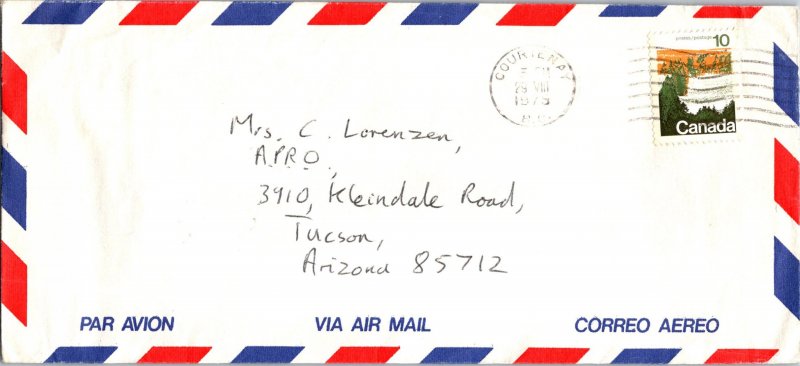 postes/postage 10
Canada
COURTENAY
PM
29 VIII
1975
B.C.
Mrs. C. Lorenzen,
A.P.R.O.,
3910, Kleindale Road,
Tucson,
Arizona 85712
PAR AVION VIA AIR MAIL CORREO AEREO